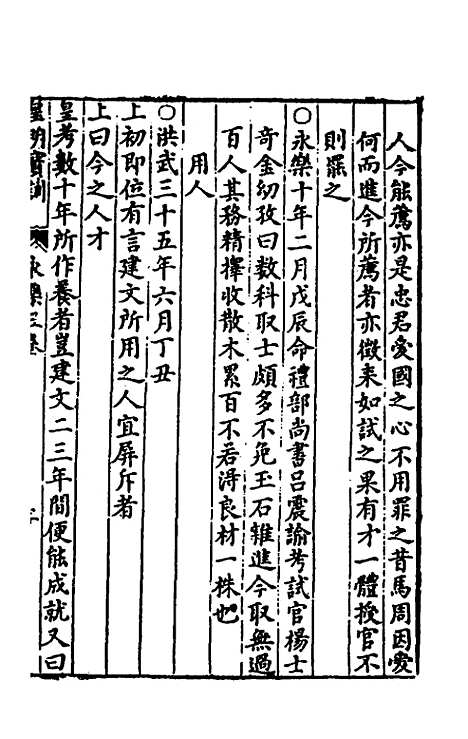 人今能薦亦是忠君愛國之心不用罪之昔馬周因愛
何而進今所薦者亦徵來如試之果有才一體授官不
則罷之
○永樂十年二月戊辰命禮部尚書呂震諭考試官楊士
竒金幼孜曰數科取士頗多不免玉石雜進今取無過
百人其務精擇收散木累百不若淂良材一株也
用人
○洪武三十五年六月丁丑
上初即位有言建文所用之人宜屏斥者
上曰今之人才
皇考數十年所作養者豈建文二三年間便能成就又曰
皇明寶訓 永樂三卷